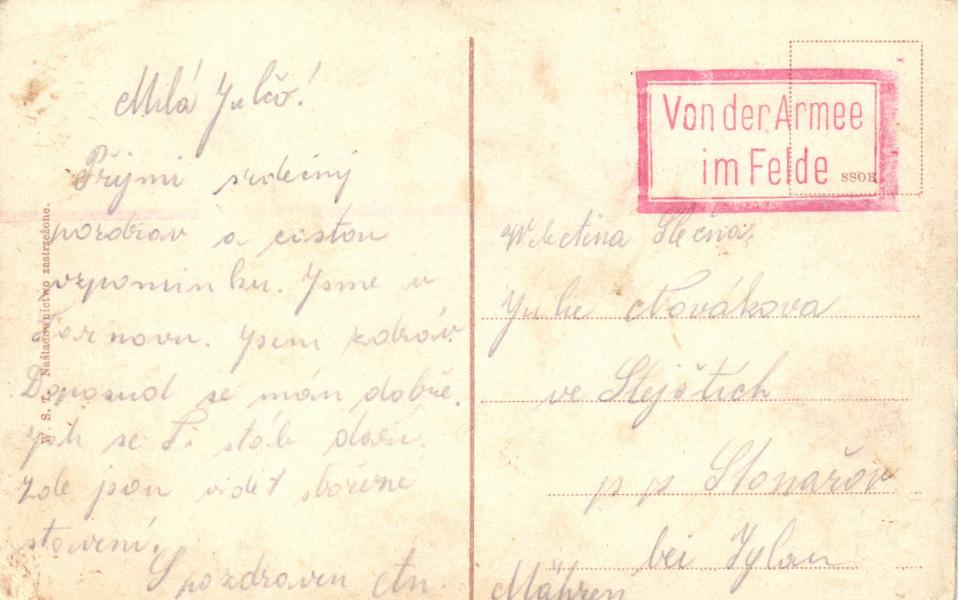 Milá Julčo!
Přijmi srdečný
pozdrav a
vzpomínku. Jsme u
Tarnova. Jsem zdráv.
Doposud se mám dobře.
Jak se Ti stále daří.
Zde jsou vidět sbořené
stavení.
S pozdravem An.
W. S. T. Naśladownictwo zastrzeżone.
Von der Armee
im Felde
SSOK
Slečna
Julie Nováková
ve Stejštích
p p Stonařov
bei Iglau
Mähren